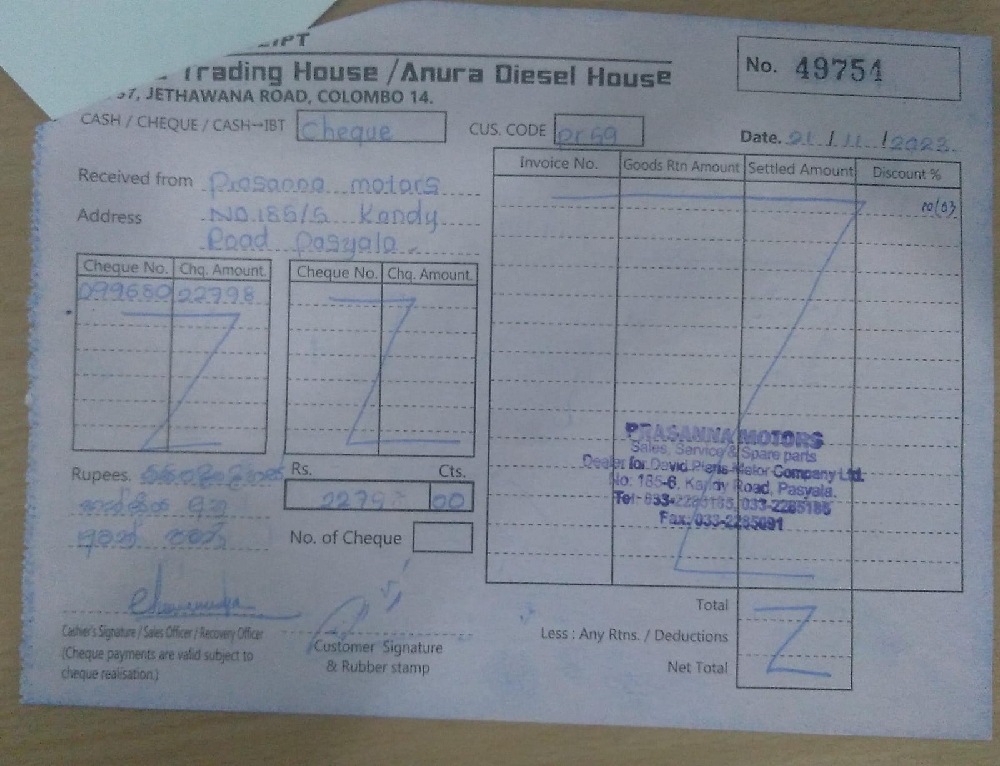 Trading House /Anura Diesel House
No. 49754
57, JETHAWANA ROAD, COLOMBO 14.
CASH / CHEQUE / CASH→IBT Cheque
CUS. CODE pr59
Date. 21 / 11 / 2023.
Received from Prasanna motors
Address NO.186/6 Kandy
Road Pasyala
Invoice No. Goods Rtn Amount Settled Amount Discount %
Cheque No. Chq. Amount. Cheque No. Chq. Amount.
099680 22798
PRASANNA MOTORS
Sales, Service & Spare parts
Dealer for David Pieris Motor Company Ltd.
No: 185-6, Kandy Road, Pasyala.
Tel: 033-2285185, 033-2285186
Fax: 033-2285091
Rupees.
Rs. Cts.
22798 00
No. of Cheque
Total
Less : Any Rtns. / Deductions
Net Total
Cashier's Signature / Sales Officer / Recovery Officer
(Cheque payments are valid subject to
cheque realisation.)
Customer Signature
& Rubber stamp